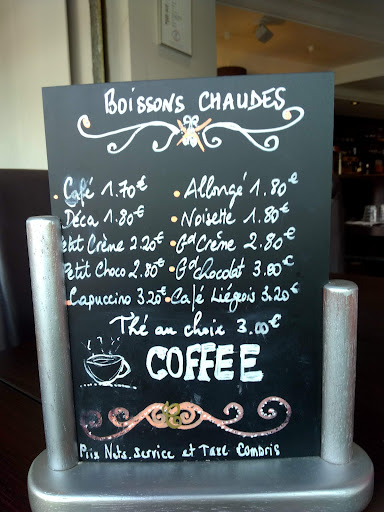 BOISSONS CHAUDES
Café 1.70€ Allongé 1.80€
Déca 1.80€ Noisette 1.80€
Petit Crème 2.20€ Gd Crème 2.80€
Petit Choco 2.80€ Gd chocolat 3.00€
Capuccino 3.20€ Café Liégeois 3.20€
Thé au choix 3.00€
COFFEE
Prix Nets. Service et Taxe Combris